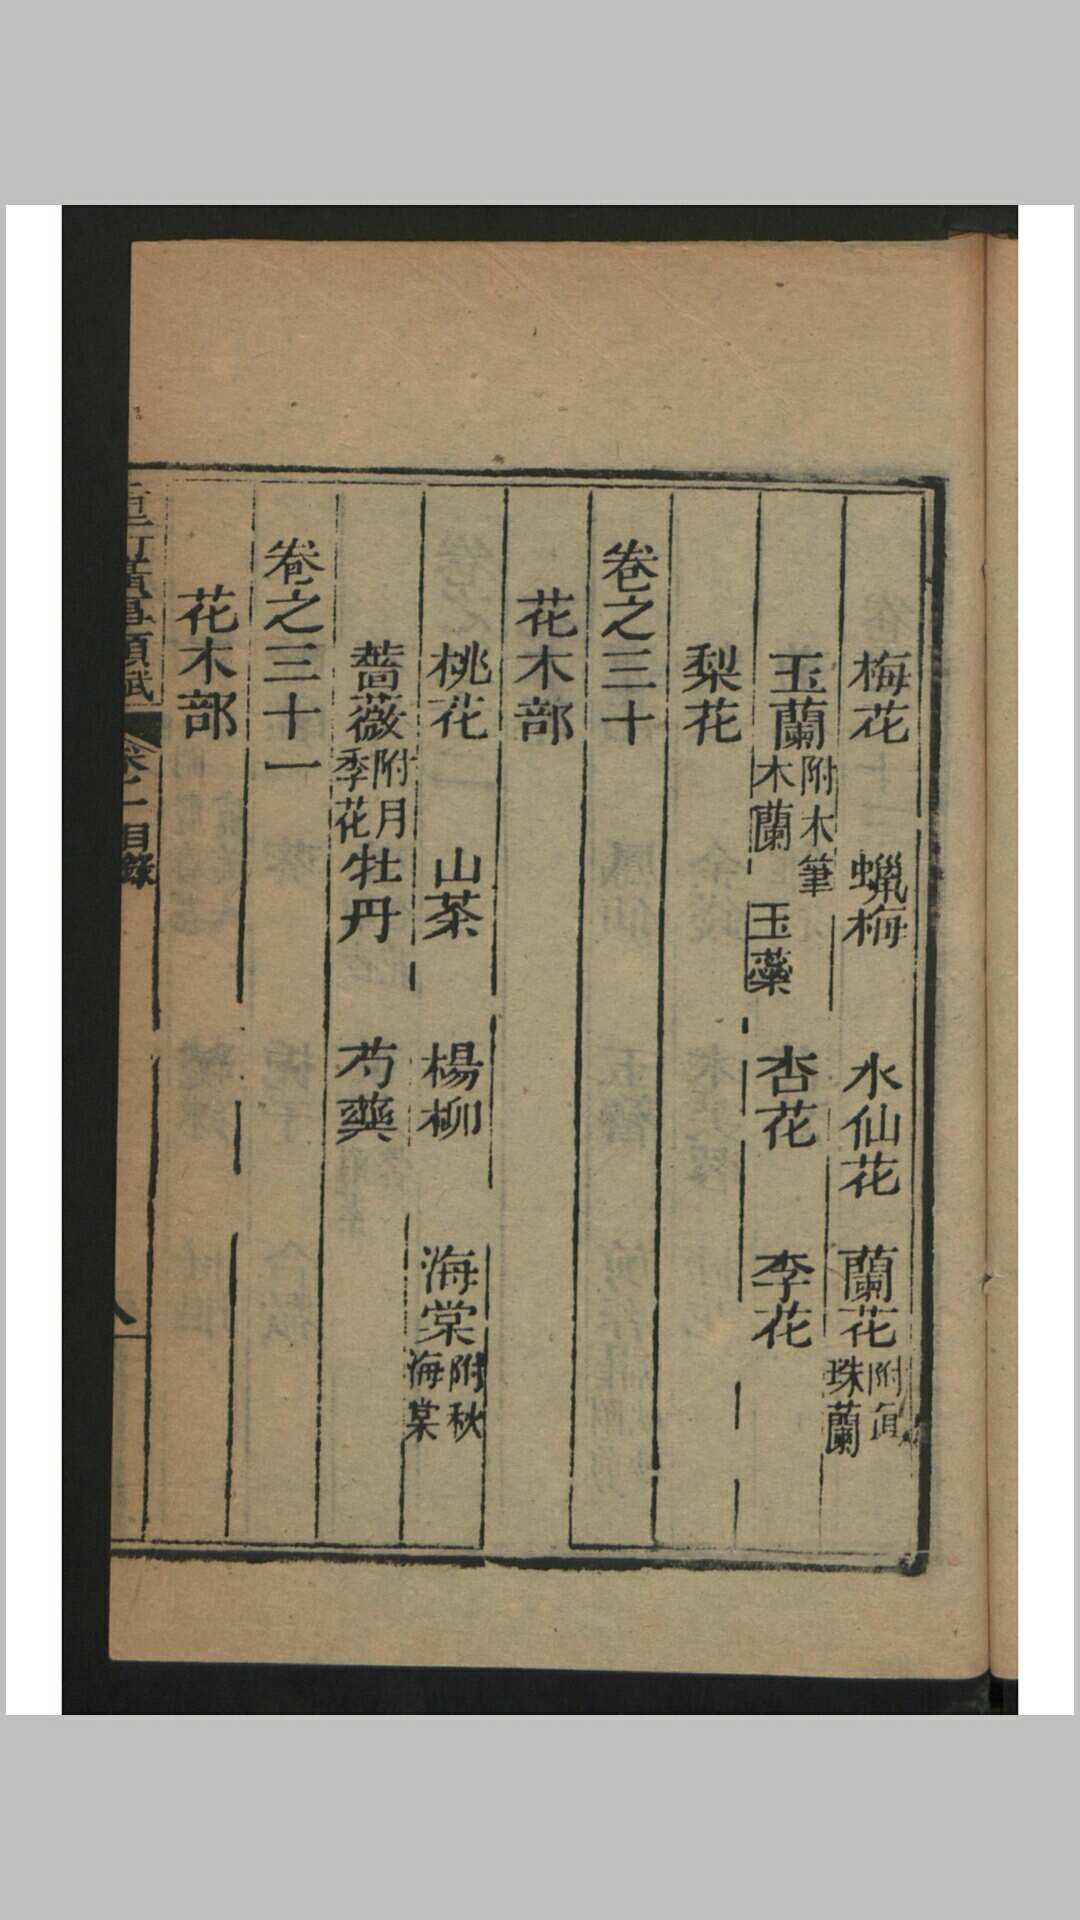 梅花 蠟梅 水仙花 蘭花附眞珠蘭
玉蘭附木筆木蘭 玉蘂 杏花 李花
梨花
卷之三十
花木部
桃花 山茶 楊柳 海棠附秋海棠
薔薇附月季花 牡丹 芍藥
卷之三十一
花木部
重訂廣事類賦 卷一目錄 八